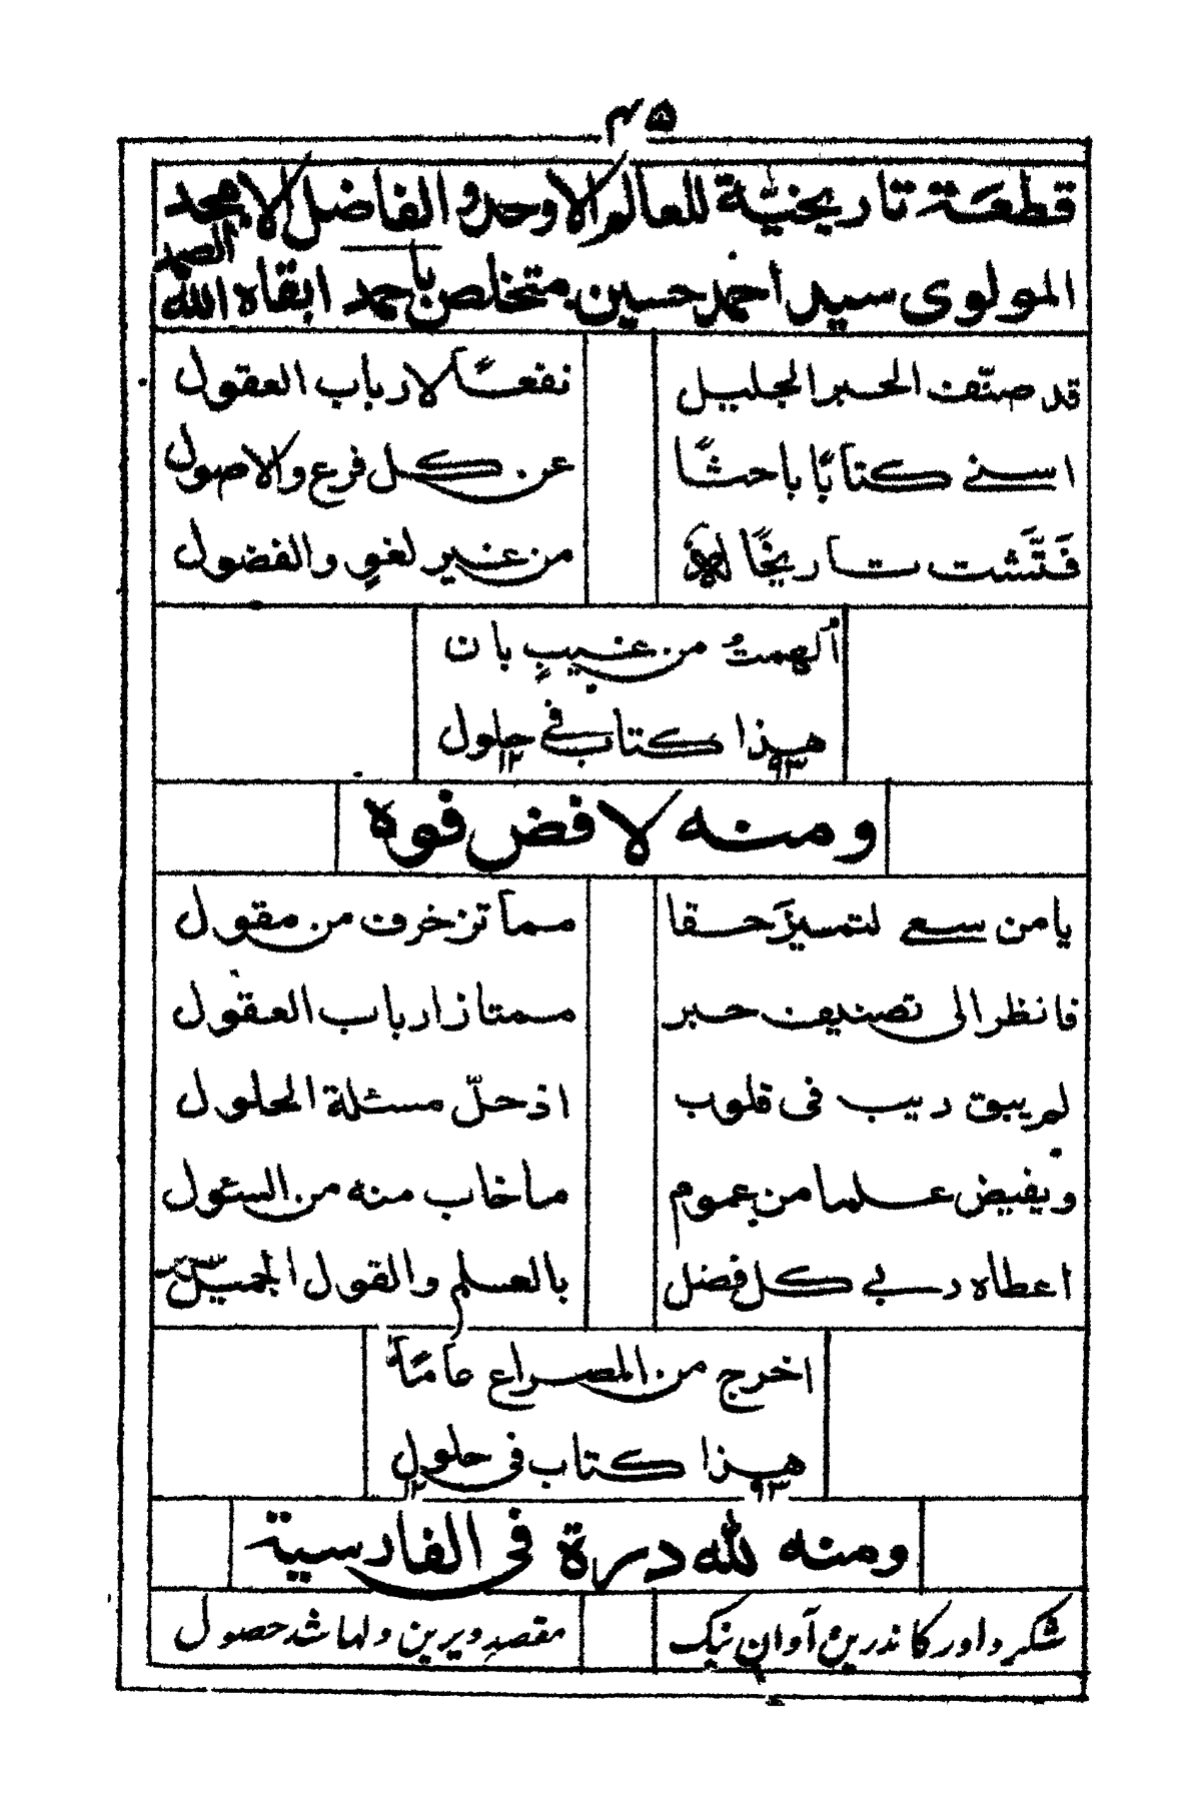 ۴۵
قطعة تاريخية للعالم الاوحد والفاضل الامجد
المولوى سيد أحمد حسين متخلص بأحمد ابقاه الله الصمد
قد صنّف الحبر الجليل نفعًا لارباب العقول
اسنے كتابًا باحثًا عن كل فرع والاصول
فَتَّشت تاريخًا له من غير لغوٍ والفضول
ألهمتُ من غيبٍ بان
هذا كتاب في حلول
۱۲ ۹۳
ومنه لا فض فوه
يا من سعے لتميزَ حقا مما تزخرف من مقول
فانظر الى تصنيف حبر ممتاز ارباب العقول
لم يبق ريب فى قلوب اذ حلّ مسئلة الحلول
ويفيض علما من عموم ما خاب منه من السئول
اعطاه ربے كل فضل بالعلم والقول الجميل
اخرج من المصراع عامًا
هذا كتاب فى حلول
۱۲ ۹۳
ومنه لله دره فى الفارسية
شكر داور كاندرين آوان نيک مقصدِ ديرين دلها شد حصول